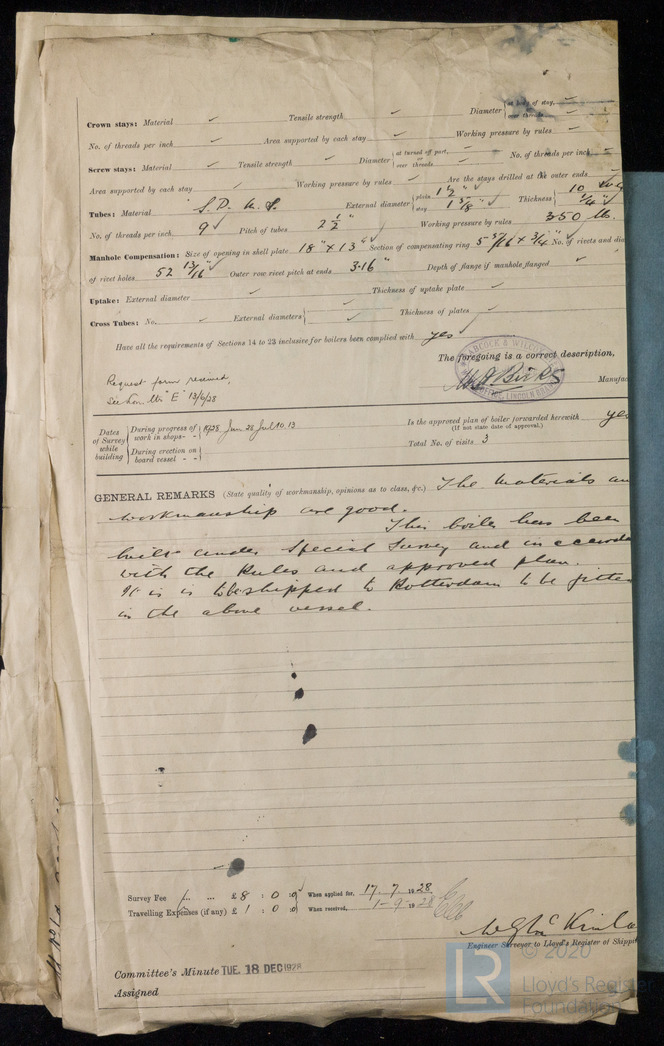 Crown stays: Material ✓ Tensile strength ✓ Diameter { at body of stay, over threads
No. of threads per inch ✓ Area supported by each stay ✓ Working pressure by rules
Screw stays: Material ✓ Tensile strength ✓ Diameter { at turned off part, or over threads No. of threads per inch
Area supported by each stay ✓ Working pressure by rules ✓ Are the stays drilled at the outer ends
Tubes: Material S.D.M.S. External diameter { plain 1½" stay 1⅝" Thickness { 10 ¼"
No. of threads per inch 9 ✓ Pitch of tubes 2½" Working pressure by rules 350 lb.
Manhole Compensation: Size of opening in shell plate 18" x 13" Section of compensating ring No. of rivets and dia
of rivet holes 52 13/16" Outer row rivet pitch at ends 3.16" Depth of flange if manhole flanged ✓
Uptake: External diameter ✓ Thickness of uptake plate ✓
Cross Tubes: No. ✓ External diameters { ✓ Thickness of plates ✓
Have all the requirements of Sections 14 to 23 inclusive for boilers been complied with yes
BABCOCK & WILCOX
The foregoing is a correct description,
Birks Manufac
Request form received,
"E" 13/6/28
Dates of Survey while building { During progress of work in shops - - } 1928 Jun 28 Jul 10. 13
{ During erection on board vessel - - }
Is the approved plan of boiler forwarded herewith yes
(If not state date of approval.)
Total No. of visits 3
GENERAL REMARKS (State quality of workmanship, opinions as to class, &c.) The materials an
workmanship are good.
This boiler has been
built under Special Survey and in accorda
with the Rules and approved plan.
It is to be shipped to Rotterdam to be fitted
in the above vessel.
Survey Fee ... ... £ 8 : 0 : 0 When applied for, 17.7 1928
Travelling Expenses (if any) £ 1 : 0 : 0 When received, 1-9-1928
Engineer Surveyor to Lloyd's Register of Shippi
Committee's Minute TUE. 18 DEC 1928
Assigned
LR © 2020
Lloyd's Register
Foundation